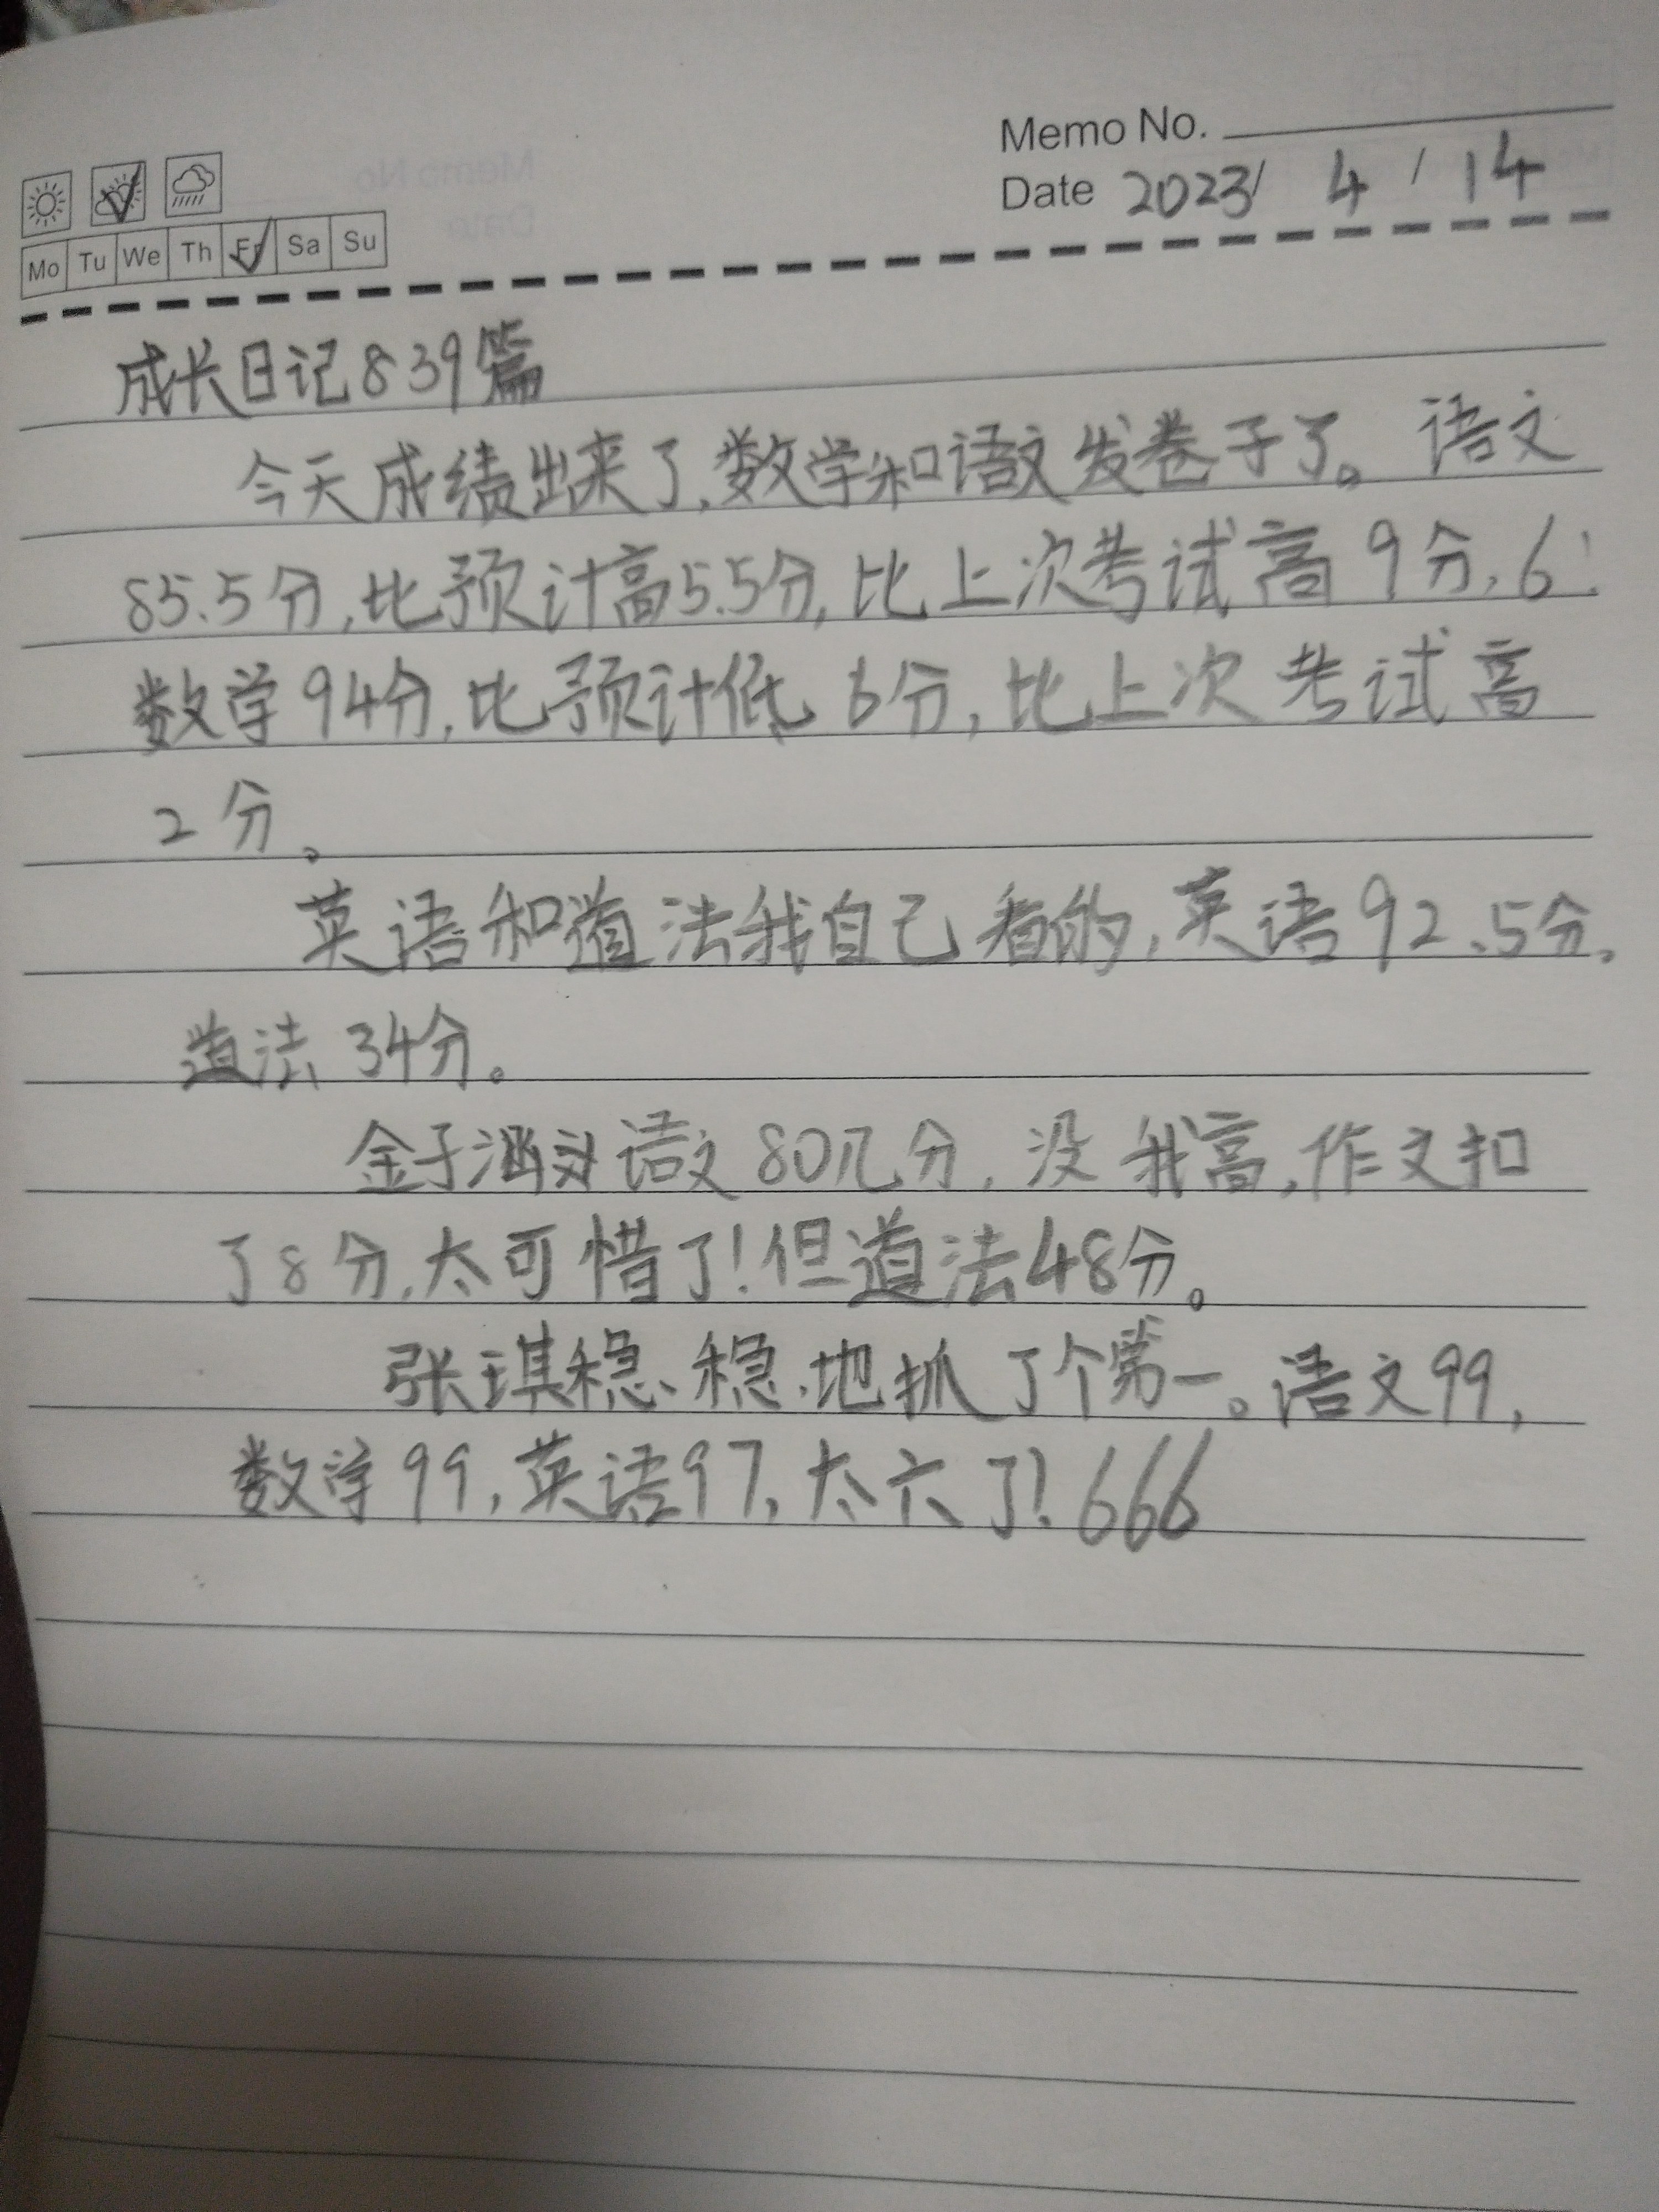 Memo No.
Date 2023/ 4 / 14
Mo Tu We Th Fr Sa Su
成长日记839篇
今天成绩出来了,数学和语文发卷子了。语文
85.5分,比预计高5.5分,比上次考试高9分,6!
数学94分,比预计低6分,比上次考试高
2分。
英语和道法我自己看的,英语92.5分,
道法34分。
金子涵语文80几分,没我高,作文扣
了8分,太可惜了!但道法48分。
张琪稳、稳、地抓了个第一。语文99,
数学99,英语97,太六了!666